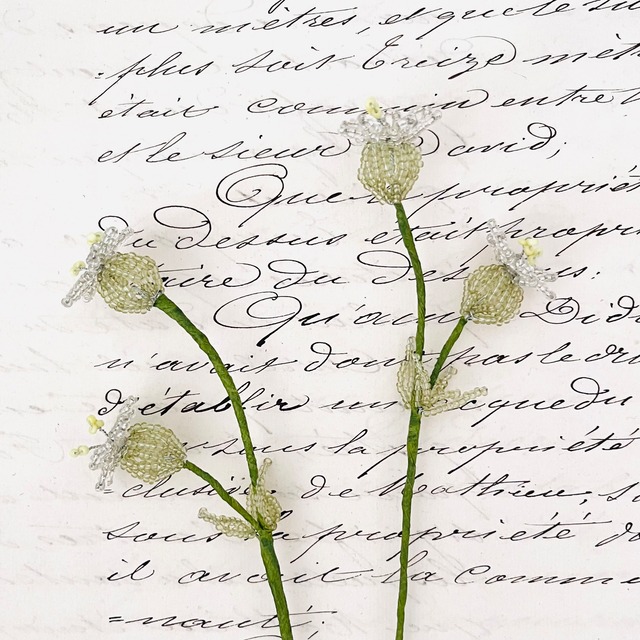 un mètres, et que le
plus soit treize
était commun entre
et le sieur David;
Que propriété
Du Dessus était propri
taire du des
Qu'au Did
n'avait dont pas le dro
d'établir un que du
sous la propriété
de Mathieu, s
sous la propriété do
il avoit la comme
=nauté;